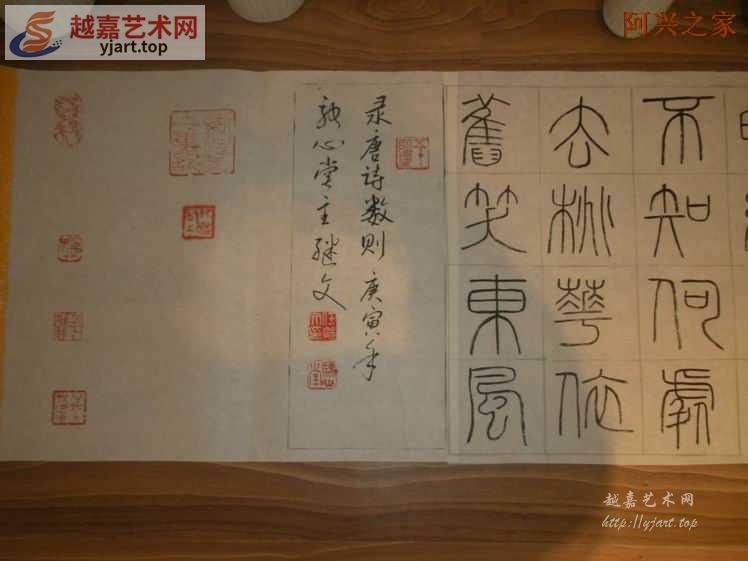 越嘉艺术网
yjart.top
阿兴之家
不知何處
去桃華依
舊笑東風
录唐诗数则 庚寅年
心堂主继文
越嘉艺术网
http://yjart.top